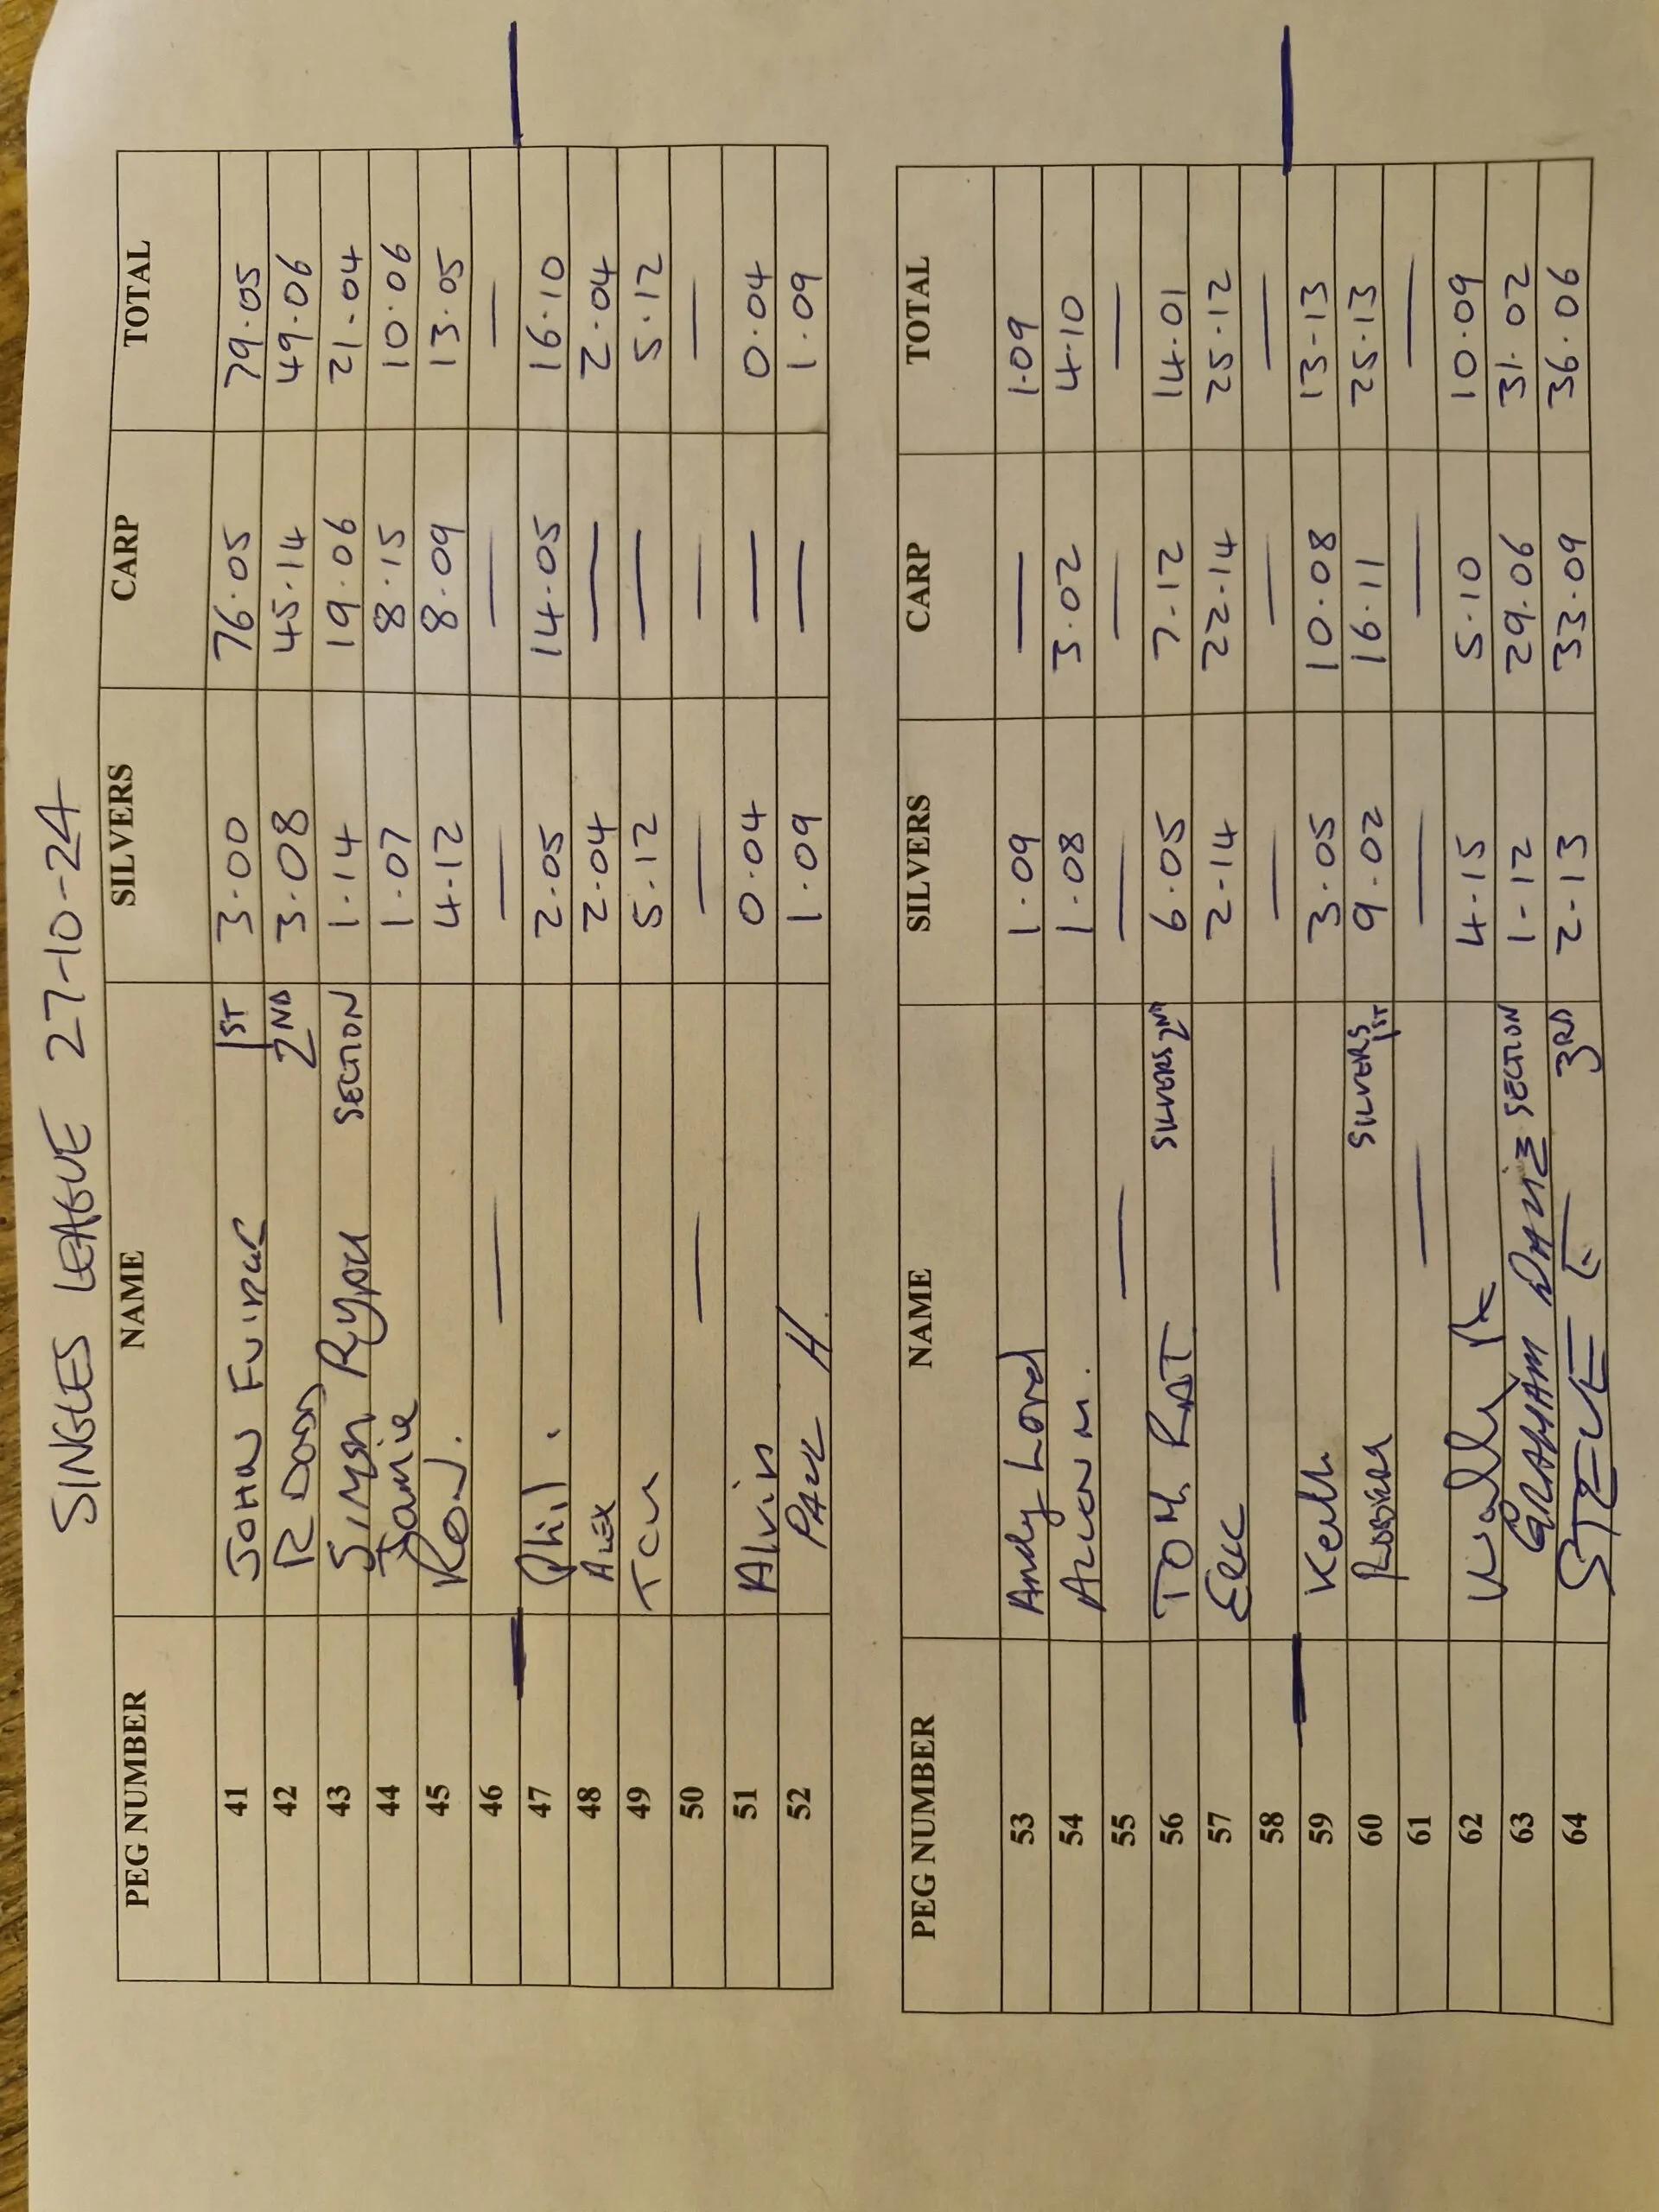 SINGLES LEAGUE 27-10-24
PEG NUMBER NAME SILVERS CARP TOTAL
41 JOHN 1ST 3.00 76.05 79.05
42 R DODD 2ND 3.08 45.14 49.06
43 SIMON SECTION 1.14 19.06 21.04
44 Jamie 1.07 8.15 10.06
45 4.12 8.09 13.05
46 — — — —
47 Phil. 2.05 14.05 16.10
48 ALEX 2.04 — 2.04
49 5.12 — 5.12
50 — — — —
51 Alvin 0.04 — 0.04
52 PAUL H. 1.09 — 1.09
PEG NUMBER NAME SILVERS CARP TOTAL
53 Andy Lord 1.09 — 1.09
54 M. 1.08 3.02 4.10
55 — — — —
56 TOM SILVERS 2ND 6.05 7.12 14.01
57 2.14 22.14 25.12
58 — — — —
59 3.05 10.08 13-13
60 SILVERS 1ST 9.02 16.11 25.13
61 — — — —
62 4.15 5.10 10.09
63 GRAHAM SECTION 1-12 29.06 31.02
64 STEVE 3RD 2-13 33.09 36.06